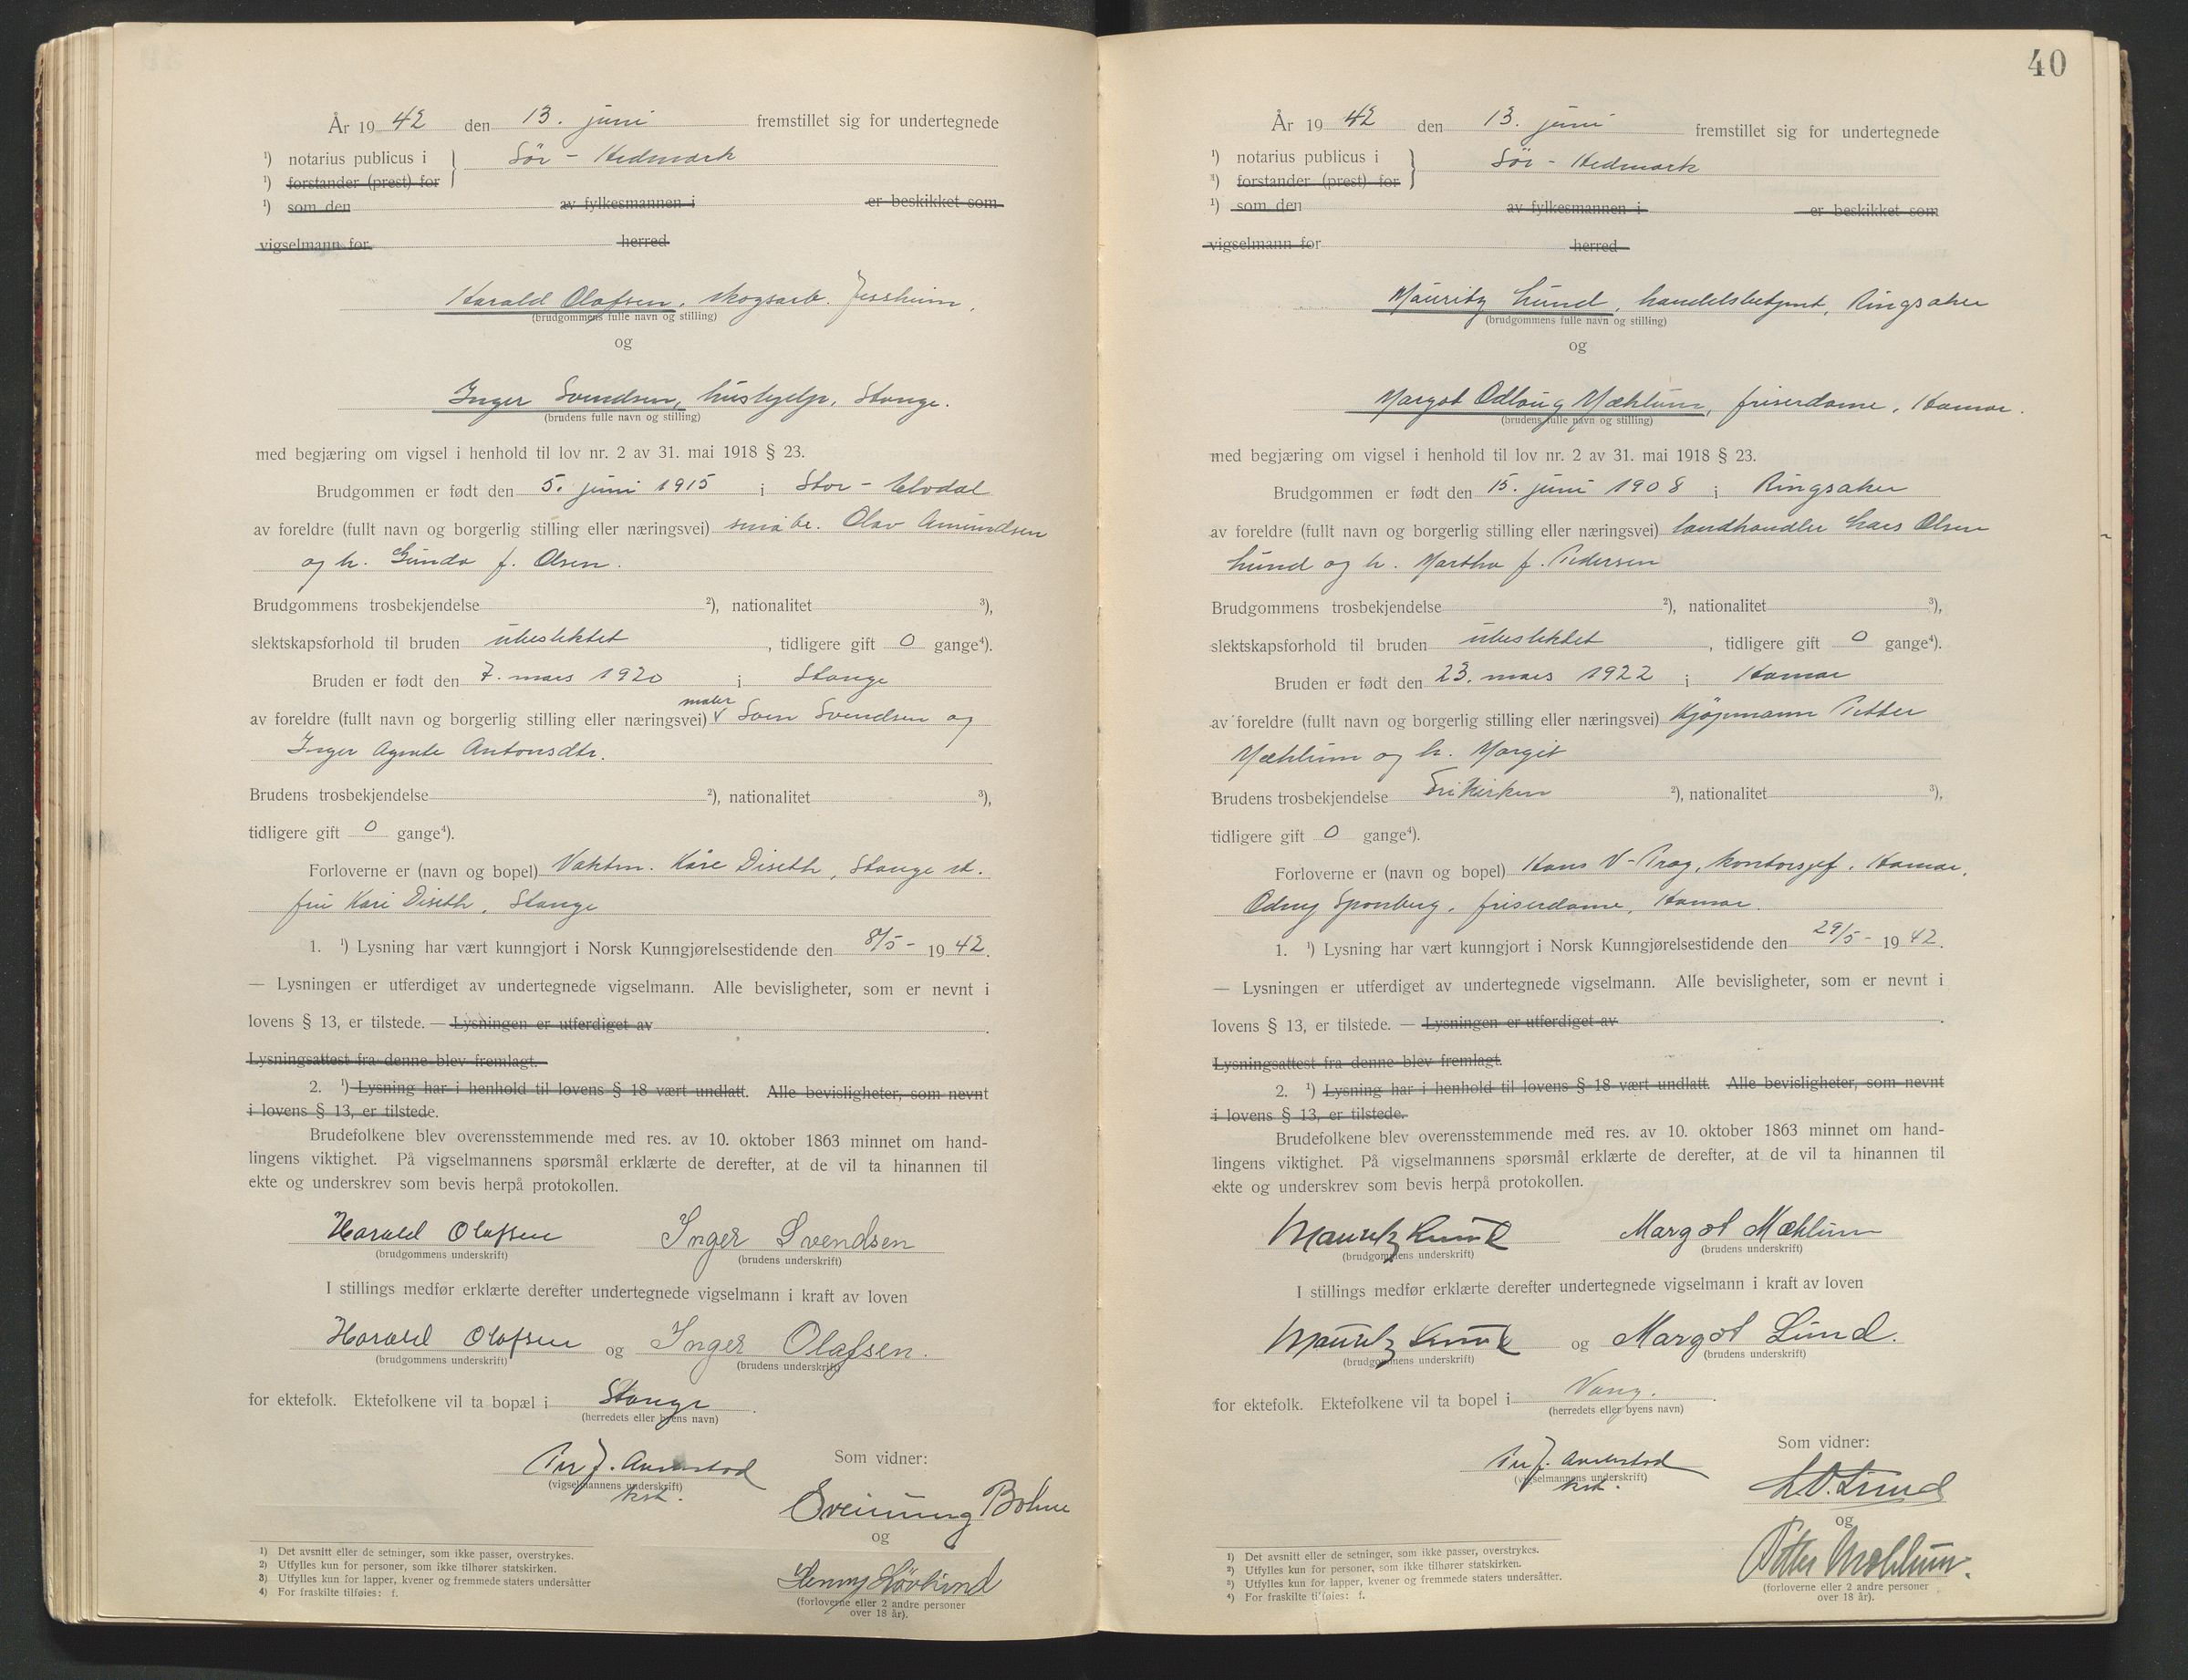 År 1942 den 13. juni fremstillet sig for undertegnede
¹) notarius publicus i } Sör - Hedmark
¹) forstander (prest) for
¹) som den av fylkesmannen i er beskikket som
vigselmann for herred
Harald Olafsen, skogsarb. Jessheim.
(brudgommens fulle navn og stilling)
og
Inger Svendsen, hushjelp, Stange.
(brudens fulle navn og stilling)
med begjæring om vigsel i henhold til lov nr. 2 av 31. mai 1918 § 23.
Brudgommen er født den 5. juni 1915 i Stor-Elvdal
av foreldre (fullt navn og borgerlig stilling eller næringsvei) småbr. Olav Amundsen
og h. Gunda f. Olsen.
Brudgommens trosbekjendelse ²), nationalitet ³),
slektskapsforhold til bruden ubeslektet, tidligere gift 0 gange⁴).
Bruden er født den 7. mars 1920 i Stange
av foreldre (fullt navn og borgerlig stilling eller næringsvei) maler Sven Svendsen og
Inger Agnete Antonsdtr.
Brudens trosbekjendelse ²), nationalitet ³),
tidligere gift 0 gange⁴).
Forloverne er (navn og bopel) Vaktm. Kåre Diseth, Stange st.
fru Kari Diseth, Stange
1. ¹) Lysning har vært kunngjort i Norsk Kunngjørelsestidende den 8/5- 1942.
— Lysningen er utferdiget av undertegnede vigselmann. Alle bevisligheter, som er nevnt i
lovens § 13, er tilstede. — Lysningen er utferdiget av .
Lysningsattest fra denne blev fremlagt.
2. ¹) Lysning har i henhold til lovens § 18 vært undlatt. Alle bevisligheter, som nevnt
i lovens § 13, er tilstede.
Brudefolkene blev overensstemmende med res. av 10. oktober 1863 minnet om hand-
lingens viktighet. På vigselmannens spørsmål erklærte de derefter, at de vil ta hinannen til
ekte og underskrev som bevis herpå protokollen.
Harald Olafsen Inger Svendsen
(brudgommens underskrift) (brudens underskrift)
I stillings medfør erklærte derefter undertegnede vigselmann i kraft av loven
Harald Olafsen og Inger Olafsen.
(brudgommens underskrift) (brudens underskrift)
for ektefolk. Ektefolkene vil ta bopæl i Stange.
(herredets eller byens navn)
Som vidner:
Per J. Aunerstad
(vigselmannens underskrift)
kst.
Sveinung Bohne
og
Henny Lövlund
(forloverne eller 2 andre personer
over 18 år).
1) Det avsnitt eller de setninger, som ikke passer, overstrykes.
2) Utfylles kun for personer, som ikke tilhører statskirken.
3) Utfylles kun for lapper, kvener og fremmede staters undersåtter
4) For fraskilte tilføies: f.
40
År 1942 den 13. juni fremstillet sig for undertegnede
¹) notarius publicus i } Sör - Hedmark
¹) forstander (prest) for
¹) som den av fylkesmannen i er beskikket som
vigselmann for herred
Mauritz Lund, handelsbetjent, Ringsaker
(brudgommens fulle navn og stilling)
og
Margot Odlaug Mæhlum, friserdame, Hamar.
(brudens fulle navn og stilling)
med begjæring om vigsel i henhold til lov nr. 2 av 31. mai 1918 § 23.
Brudgommen er født den 15. juni 1908 i Ringsaker
av foreldre (fullt navn og borgerlig stilling eller næringsvei) landhandler Lars Olsen
Lund og h. Martha f. Pedersen
Brudgommens trosbekjendelse ²), nationalitet ³),
slektskapsforhold til bruden ubeslektet, tidligere gift 0 gange⁴).
Bruden er født den 23. mars 1922 i Hamar
av foreldre (fullt navn og borgerlig stilling eller næringsvei) Kjöpmann Petter
Mæhlum og h. Margit
Brudens trosbekjendelse Frikirken ²), nationalitet ³),
tidligere gift 0 gange⁴).
Forloverne er (navn og bopel) Hans V-Prag, kontorsjef, Hamar,
Odny Sponberg, friserdame, Hamar.
1. ¹) Lysning har vært kunngjort i Norsk Kunngjørelsestidende den 29/5- 1942.
— Lysningen er utferdiget av undertegnede vigselmann. Alle bevisligheter, som er nevnt i
lovens § 13, er tilstede. — Lysningen er utferdiget av .
Lysningsattest fra denne blev fremlagt.
2. ¹) Lysning har i henhold til lovens § 18 vært undlatt. Alle bevisligheter, som nevnt
i lovens § 13, er tilstede.
Brudefolkene blev overensstemmende med res. av 10. oktober 1863 minnet om hand-
lingens viktighet. På vigselmannens spørsmål erklærte de derefter, at de vil ta hinannen til
ekte og underskrev som bevis herpå protokollen.
Mauritz Lund Margot Mæhlum
(brudgommens underskrift) (brudens underskrift)
I stillings medfør erklærte derefter undertegnede vigselmann i kraft av loven
Mauritz Lund og Margot Lund.
(brudgommens underskrift) (brudens underskrift)
for ektefolk. Ektefolkene vil ta bopel i Vang.
(herredets eller byens navn)
Som vidner:
Per J. Aunerstad
(vigselmannens underskrift)
kst.
L.O. Lund
og
Petter Mæhlum.
(forloverne eller 2 andre personer
over 18 år).
1) Det avsnitt eller de setninger, som ikke passer, overstrykes.
2) Utfylles kun for personer, som ikke tilhører statskirken.
3) Utfylles kun for lapper, kvener og fremmede staters undersåtter.
4) For fraskilte tilføies: f.